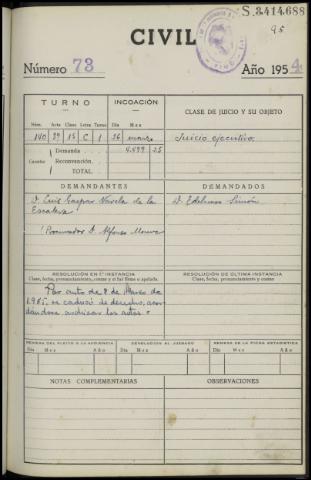 S.3414.688
95
CIVIL
Número 73
Año 1954
TURNO
INCOACIÓN
CLASE DE JUICIO Y SU OBJETO
Núm. Acta Clas. Letra Turno Día Mes
140 29 15 C 1 26 marzo
Juicio ejecutivo.
Cuantía Demanda 4.499 25
Reconvención
TOTAL
DEMANDANTES
DEMANDADOS
D. Luis Gaspar de la
Escalera
D. Edelmiro Simón
Procurador D. Alfonso
RESOLUCIÓN EN 1.ª INSTANCIA
Clase, fecha, pronunciamiento, costas y si fué firme o apelada.
RESOLUCIÓN DE ÚLTIMA INSTANCIA
Clase, fecha, pronunciamiento y costas.
Por auto de 8 de Marzo de
1965, se caducó de derecho, acor
dándose archivar los autos.
REMESA DEL PLEITO A LA AUDIENCIA
DEVOLUCIÓN AL JUZGADO
REMESA DE LA FICHA ESTADÍSTICA
Día Mes Año
Día Mes Año
Día Mes Año
NOTAS COMPLEMENTARIAS
OBSERVACIONES